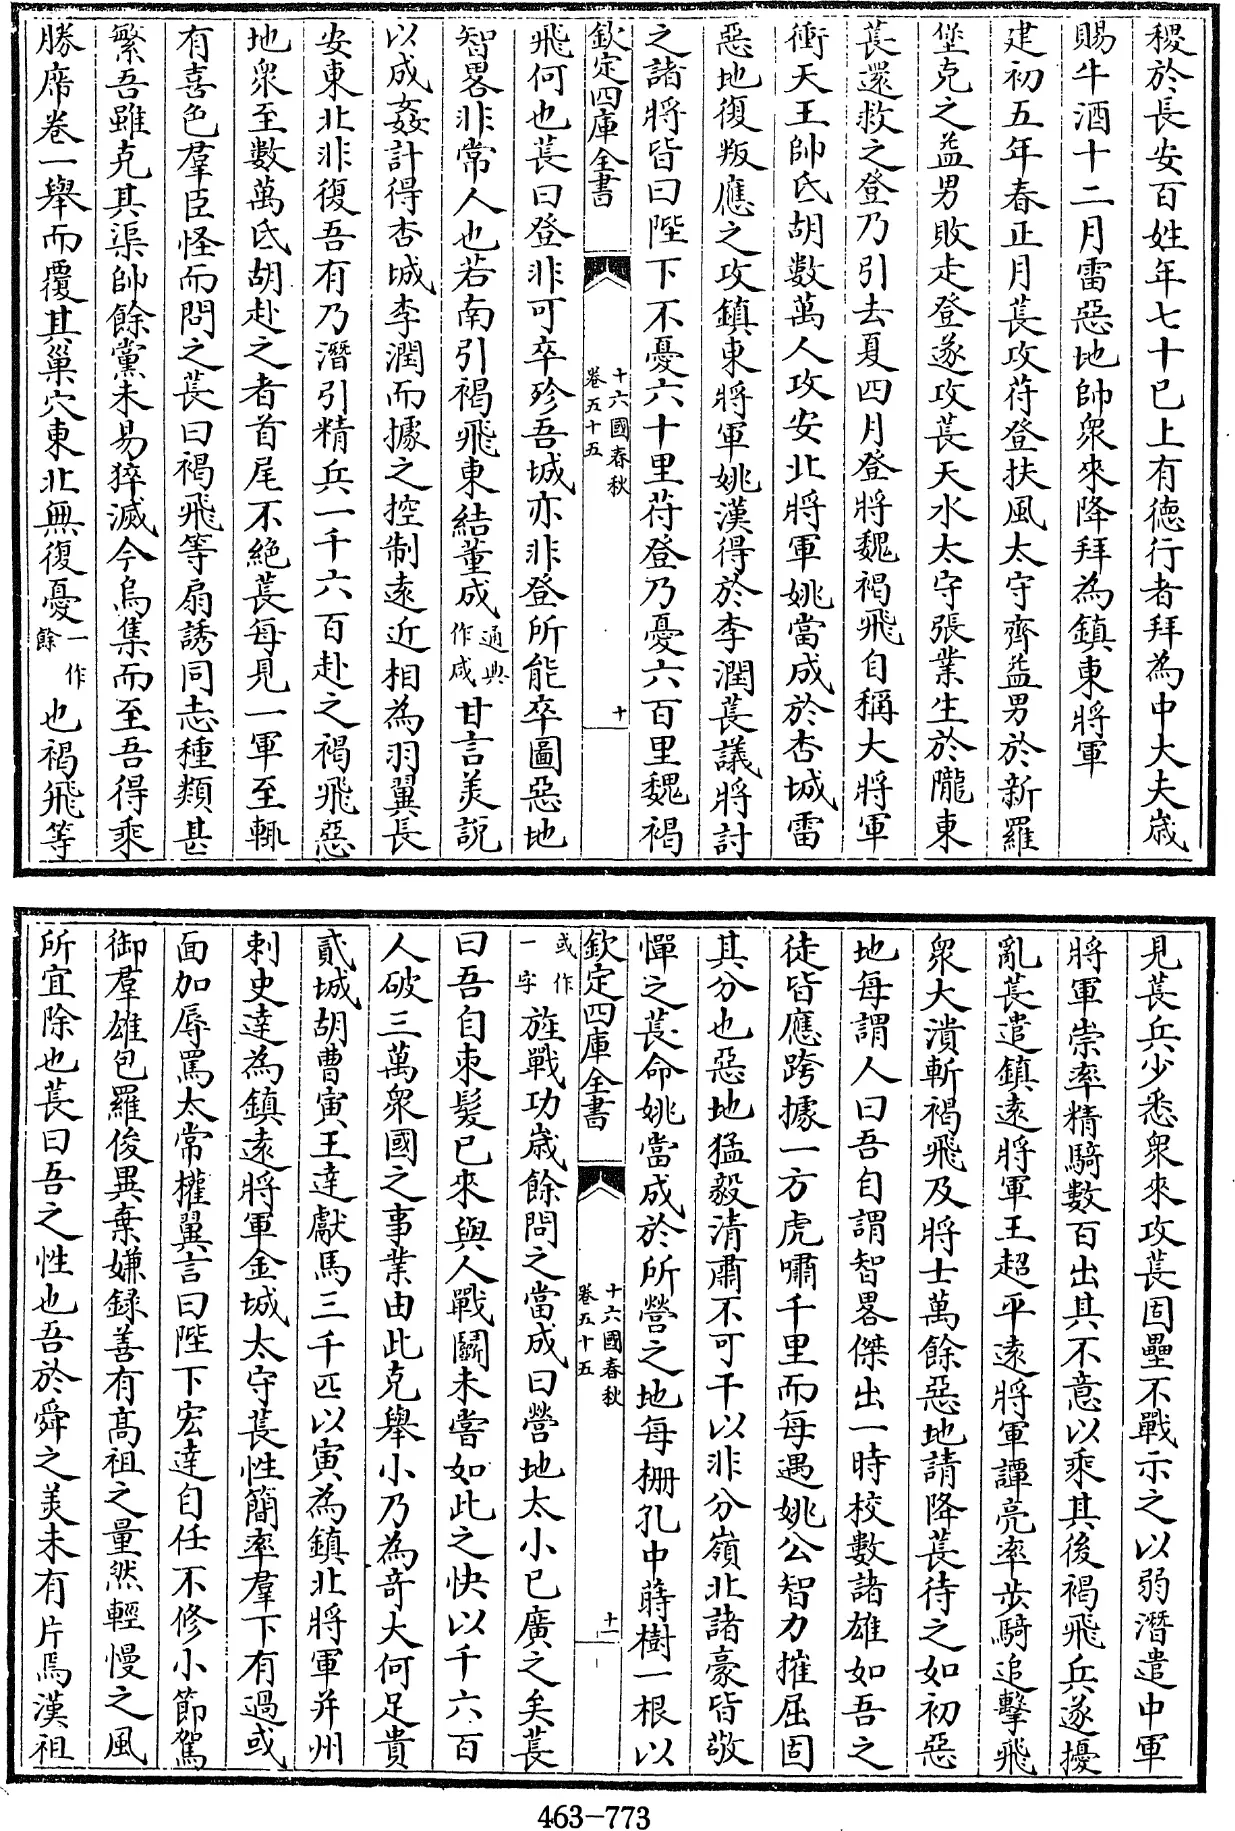 稷於長安百姓年七十已上有德行者拜為中大夫歲
賜牛酒十二月雷惡地帥衆來降拜為鎮東將軍
建初五年春正月萇攻苻登扶風太守齊益男於新羅
堡克之益男敗走登遂攻萇天水太守張業生於隴東
萇還救之登乃引去夏四月登將魏褐飛自稱大將軍
衝天王帥氐胡數萬人攻安北將軍姚當成於杏城雷
惡地復叛應之攻鎮東將軍姚漢得於李潤萇議將討
之諸將皆曰陛下不憂六十里苻登乃憂六百里魏褐
欽定四庫全書
十六國春秋
卷五十五
十
飛何也萇曰登非可卒殄吾城亦非登所能卒圖惡地
智畧非常人也若南引褐飛東結董成通典作咸甘言美說
以成姦計得杏城李潤而據之控制遠近相為羽翼長
安東北非復吾有乃潛引精兵一千六百赴之褐飛惡
地衆至數萬氐胡赴之者首尾不絕萇每見一軍至輒
有喜色羣臣怪而問之萇曰褐飛等扇誘同志種類甚
繁吾雖克其渠帥餘黨未易猝滅今烏集而至吾得乘
勝席卷一舉而覆其巢穴東北無復憂一作餘也褐飛等
見萇兵少悉衆來攻萇固壘不戰示之以弱潛遣中軍
將軍崇率精騎數百出其不意以乘其後褐飛兵遂擾
亂萇遣鎮遠將軍王超平遠將軍譚亮率步騎追擊飛
衆大潰斬褐飛及將士萬餘惡地請降萇待之如初惡
地每謂人曰吾自謂智畧傑出一時校數諸雄如吾之
徒皆應跨據一方虎嘯千里而每遇姚公智力摧屈固
其分也惡地猛毅清肅不可干以非分嶺北諸豪皆敬
憚之萇命姚當成於所營之地每柵孔中蒔樹一根以
欽定四庫全書
十六國春秋
卷五十五
十一
或作一字旌戰功歲餘問之當成曰營地太小已廣之矣萇
曰吾自束髮已來與人戰鬬未嘗如此之快以千六百
人破三萬衆國之事業由此克舉小乃為奇大何足貴
貳城胡曹寅王達獻馬三千匹以寅為鎮北將軍并州
刺史達為鎮遠將軍金城太守萇性簡率羣下有過或
面加辱罵太常權翼言曰陛下宏達自任不修小節駕
御羣雄包羅俊異棄嫌錄善有高祖之量然輕慢之風
所宜除也萇曰吾之性也吾於舜之美未有片焉漢祖
463-773